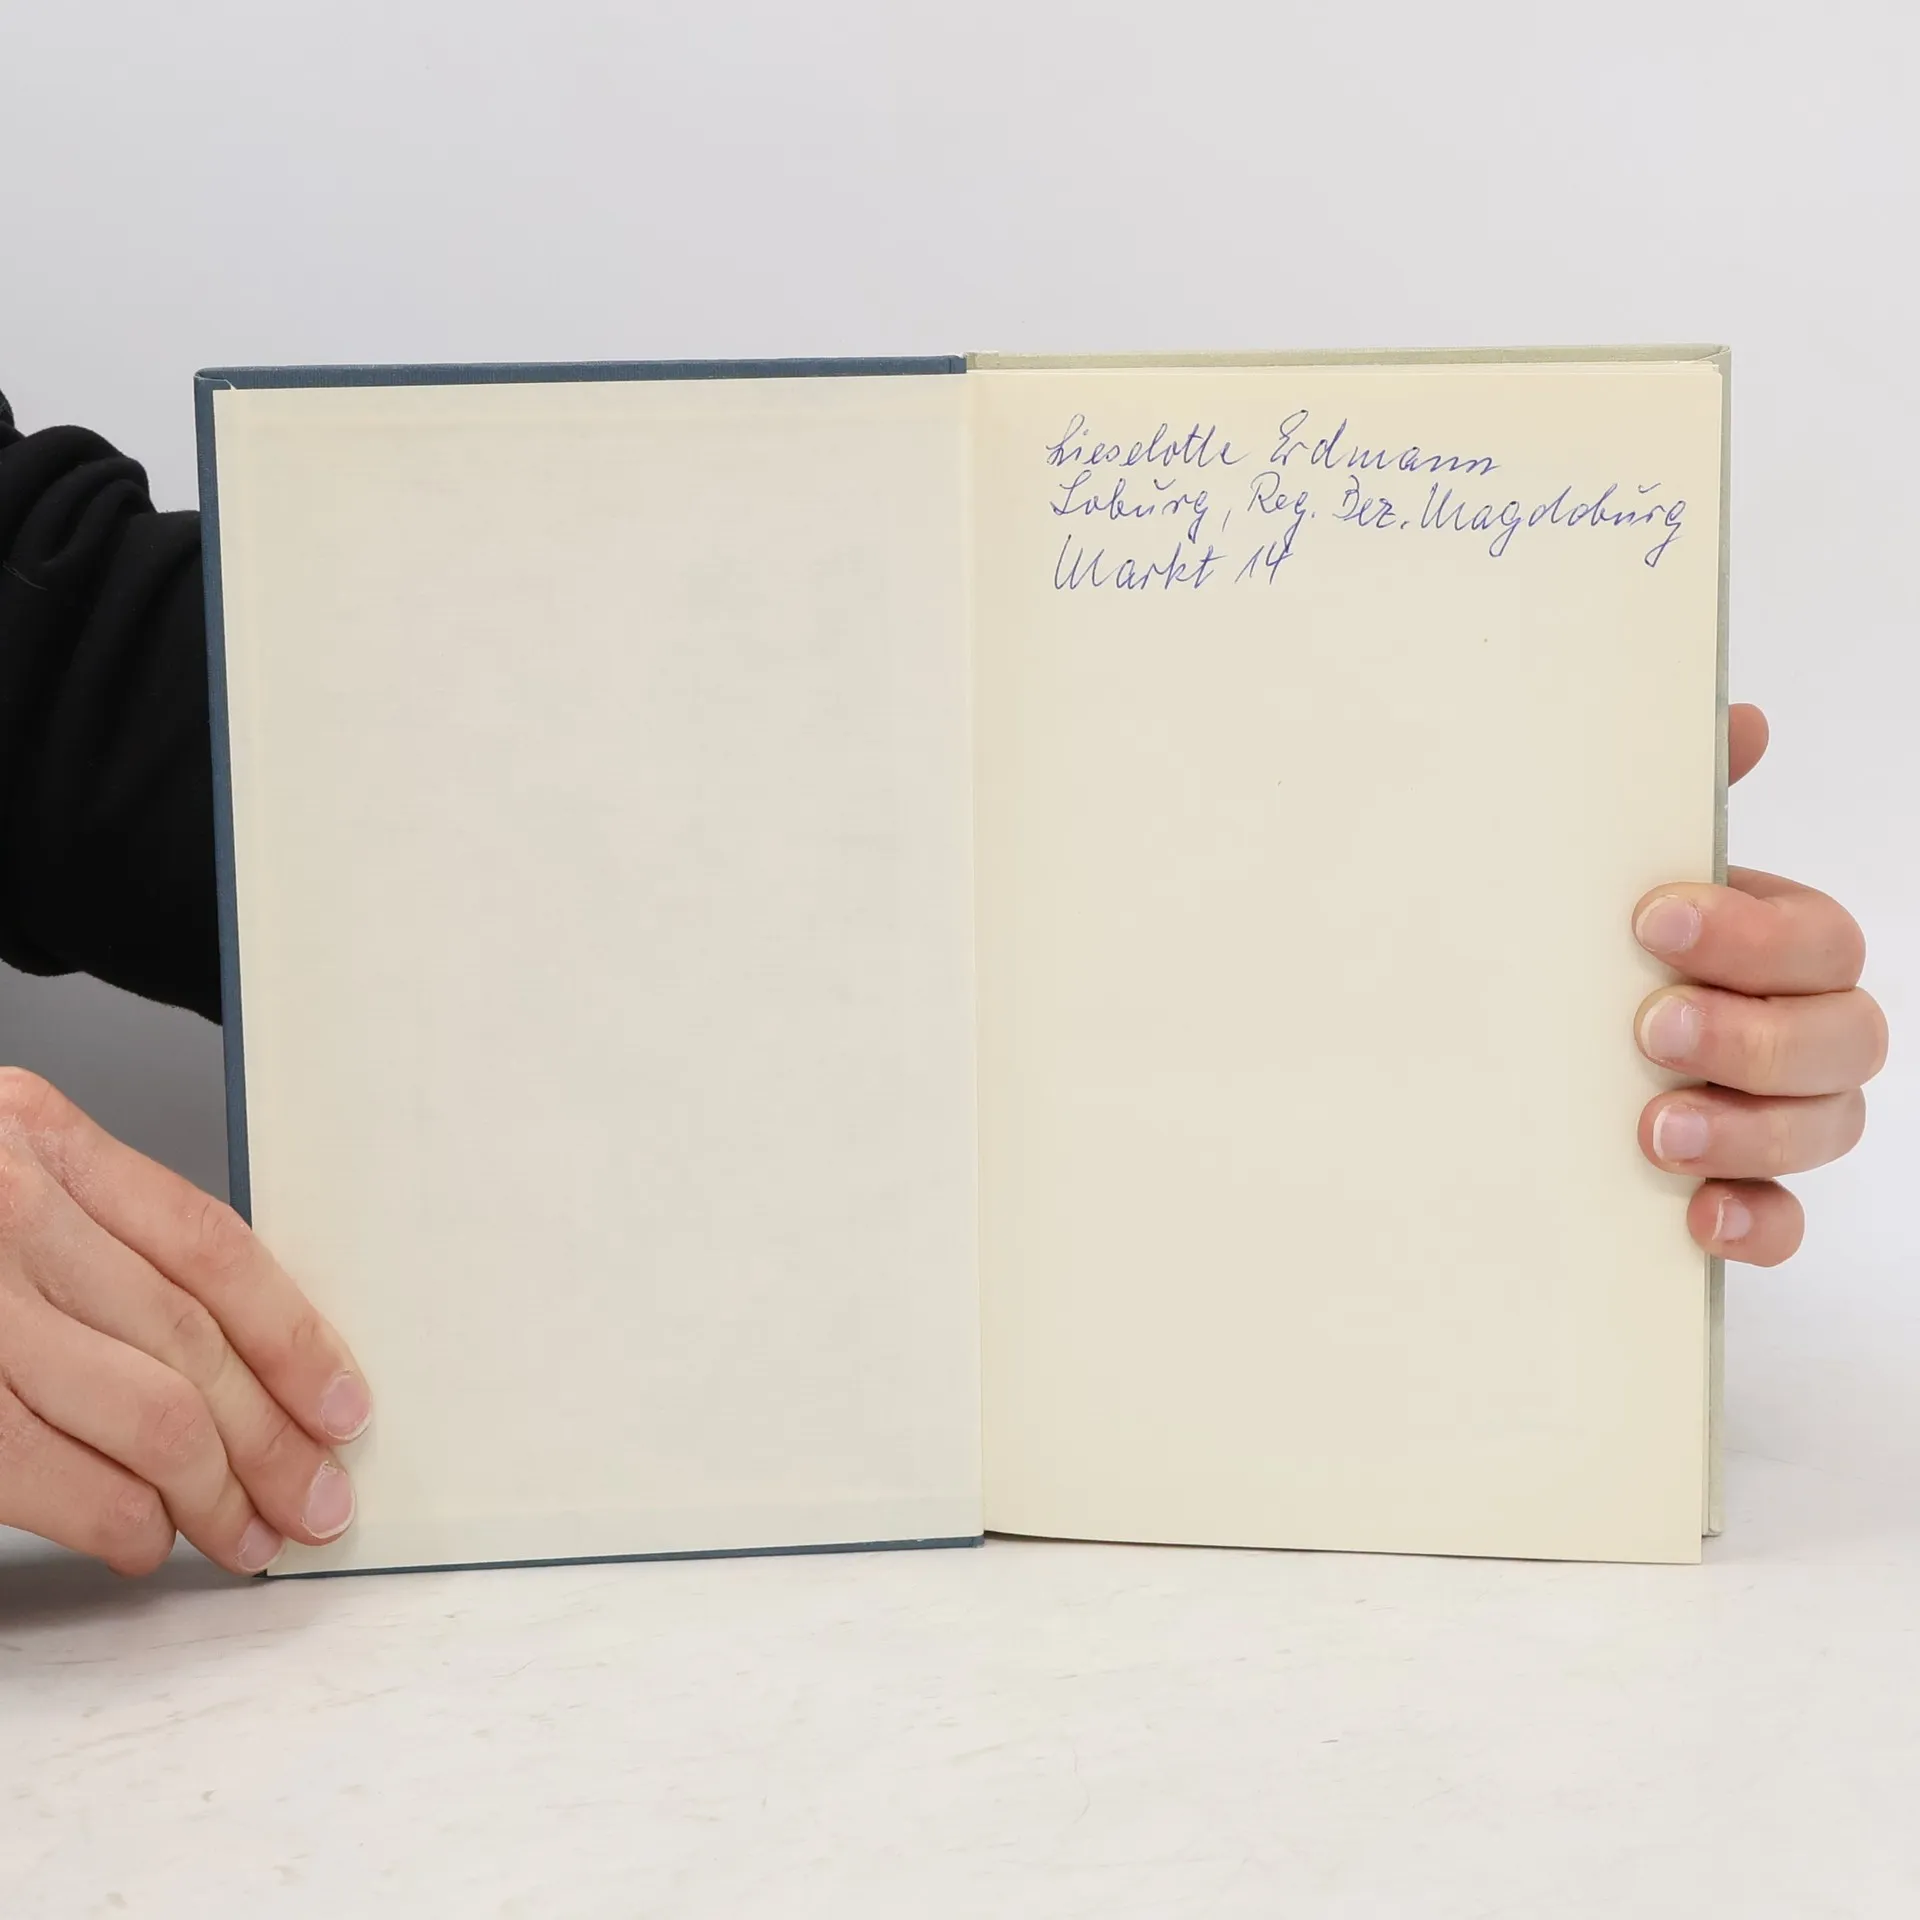 Lieselotte Erdmann
Loburg, Reg. Bez. Magdeburg
Markt 14